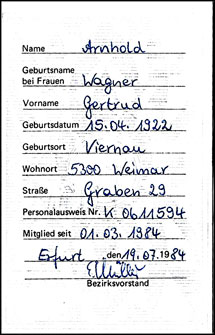 Name Arnhold
Geburtsname
bei Frauen Wagner
Vorname Gertrud
Geburtsdatum 15.04.1922
Geburtsort Viernau
Wohnort 5300 Weimar
Straße Graben 29
Personalausweis Nr. K 0611594
Mitglied seit 01.03.1984
Erfurt, den 19.07.1984
Bezirksvorstand